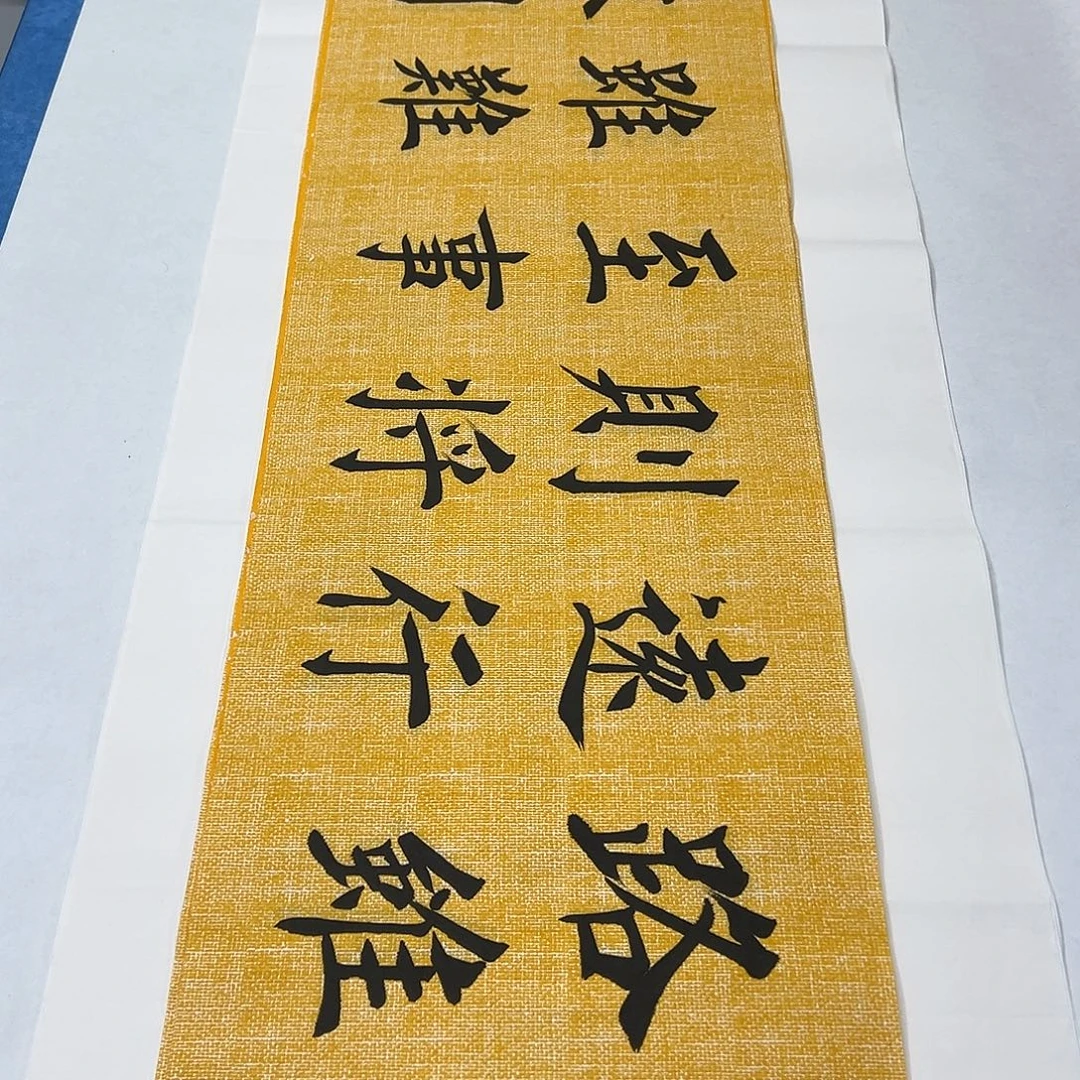 路雖
遠行
則将
至事
雖難